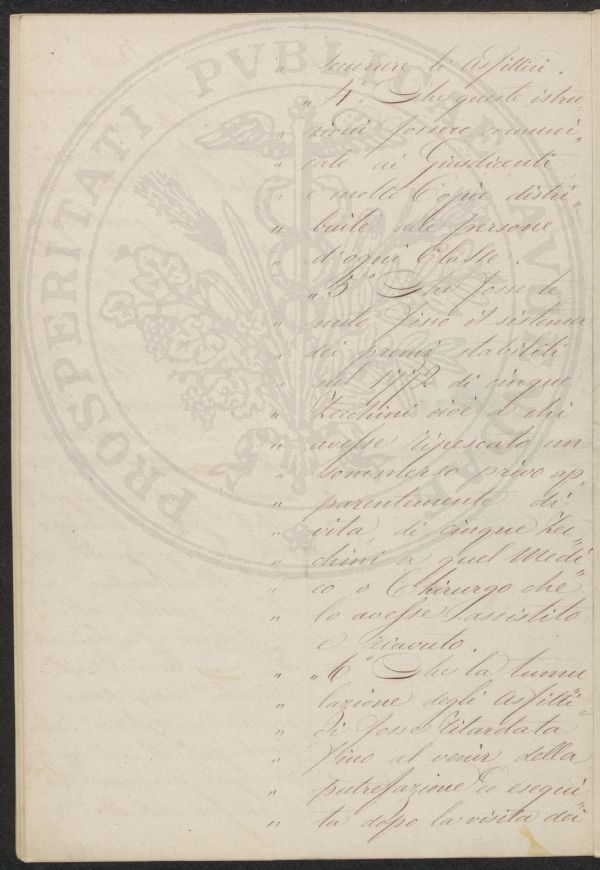 " succorrere li Asfittici.
" 4° Che queste istru„
" zioni fossero comuni„
" cate ai Giusdicenti
" e molte Copie distri„
" buite alle persone
" d'ogni Classe.
" 5° Che fosse te
" nuto fisso il sistema
" dei premi stabiliti
" nel 1772 di cinque
" Zecchini cioè a chi
" avesse ripescato un
" sommerso privo ap„
" parentemente di
" vita, di cinque Zec„
" chini a quel Medi„
" co o Chirurgo che
" lo avesse assistito
e riavuto.
" " 6° Che la tumu
" lazione degli Asfitti„
" ci fosse ritardata
" fino al venir della
" putrefazione ed esegui
" ta dopo la visita dei
PROSPERITATI PVBLICAE